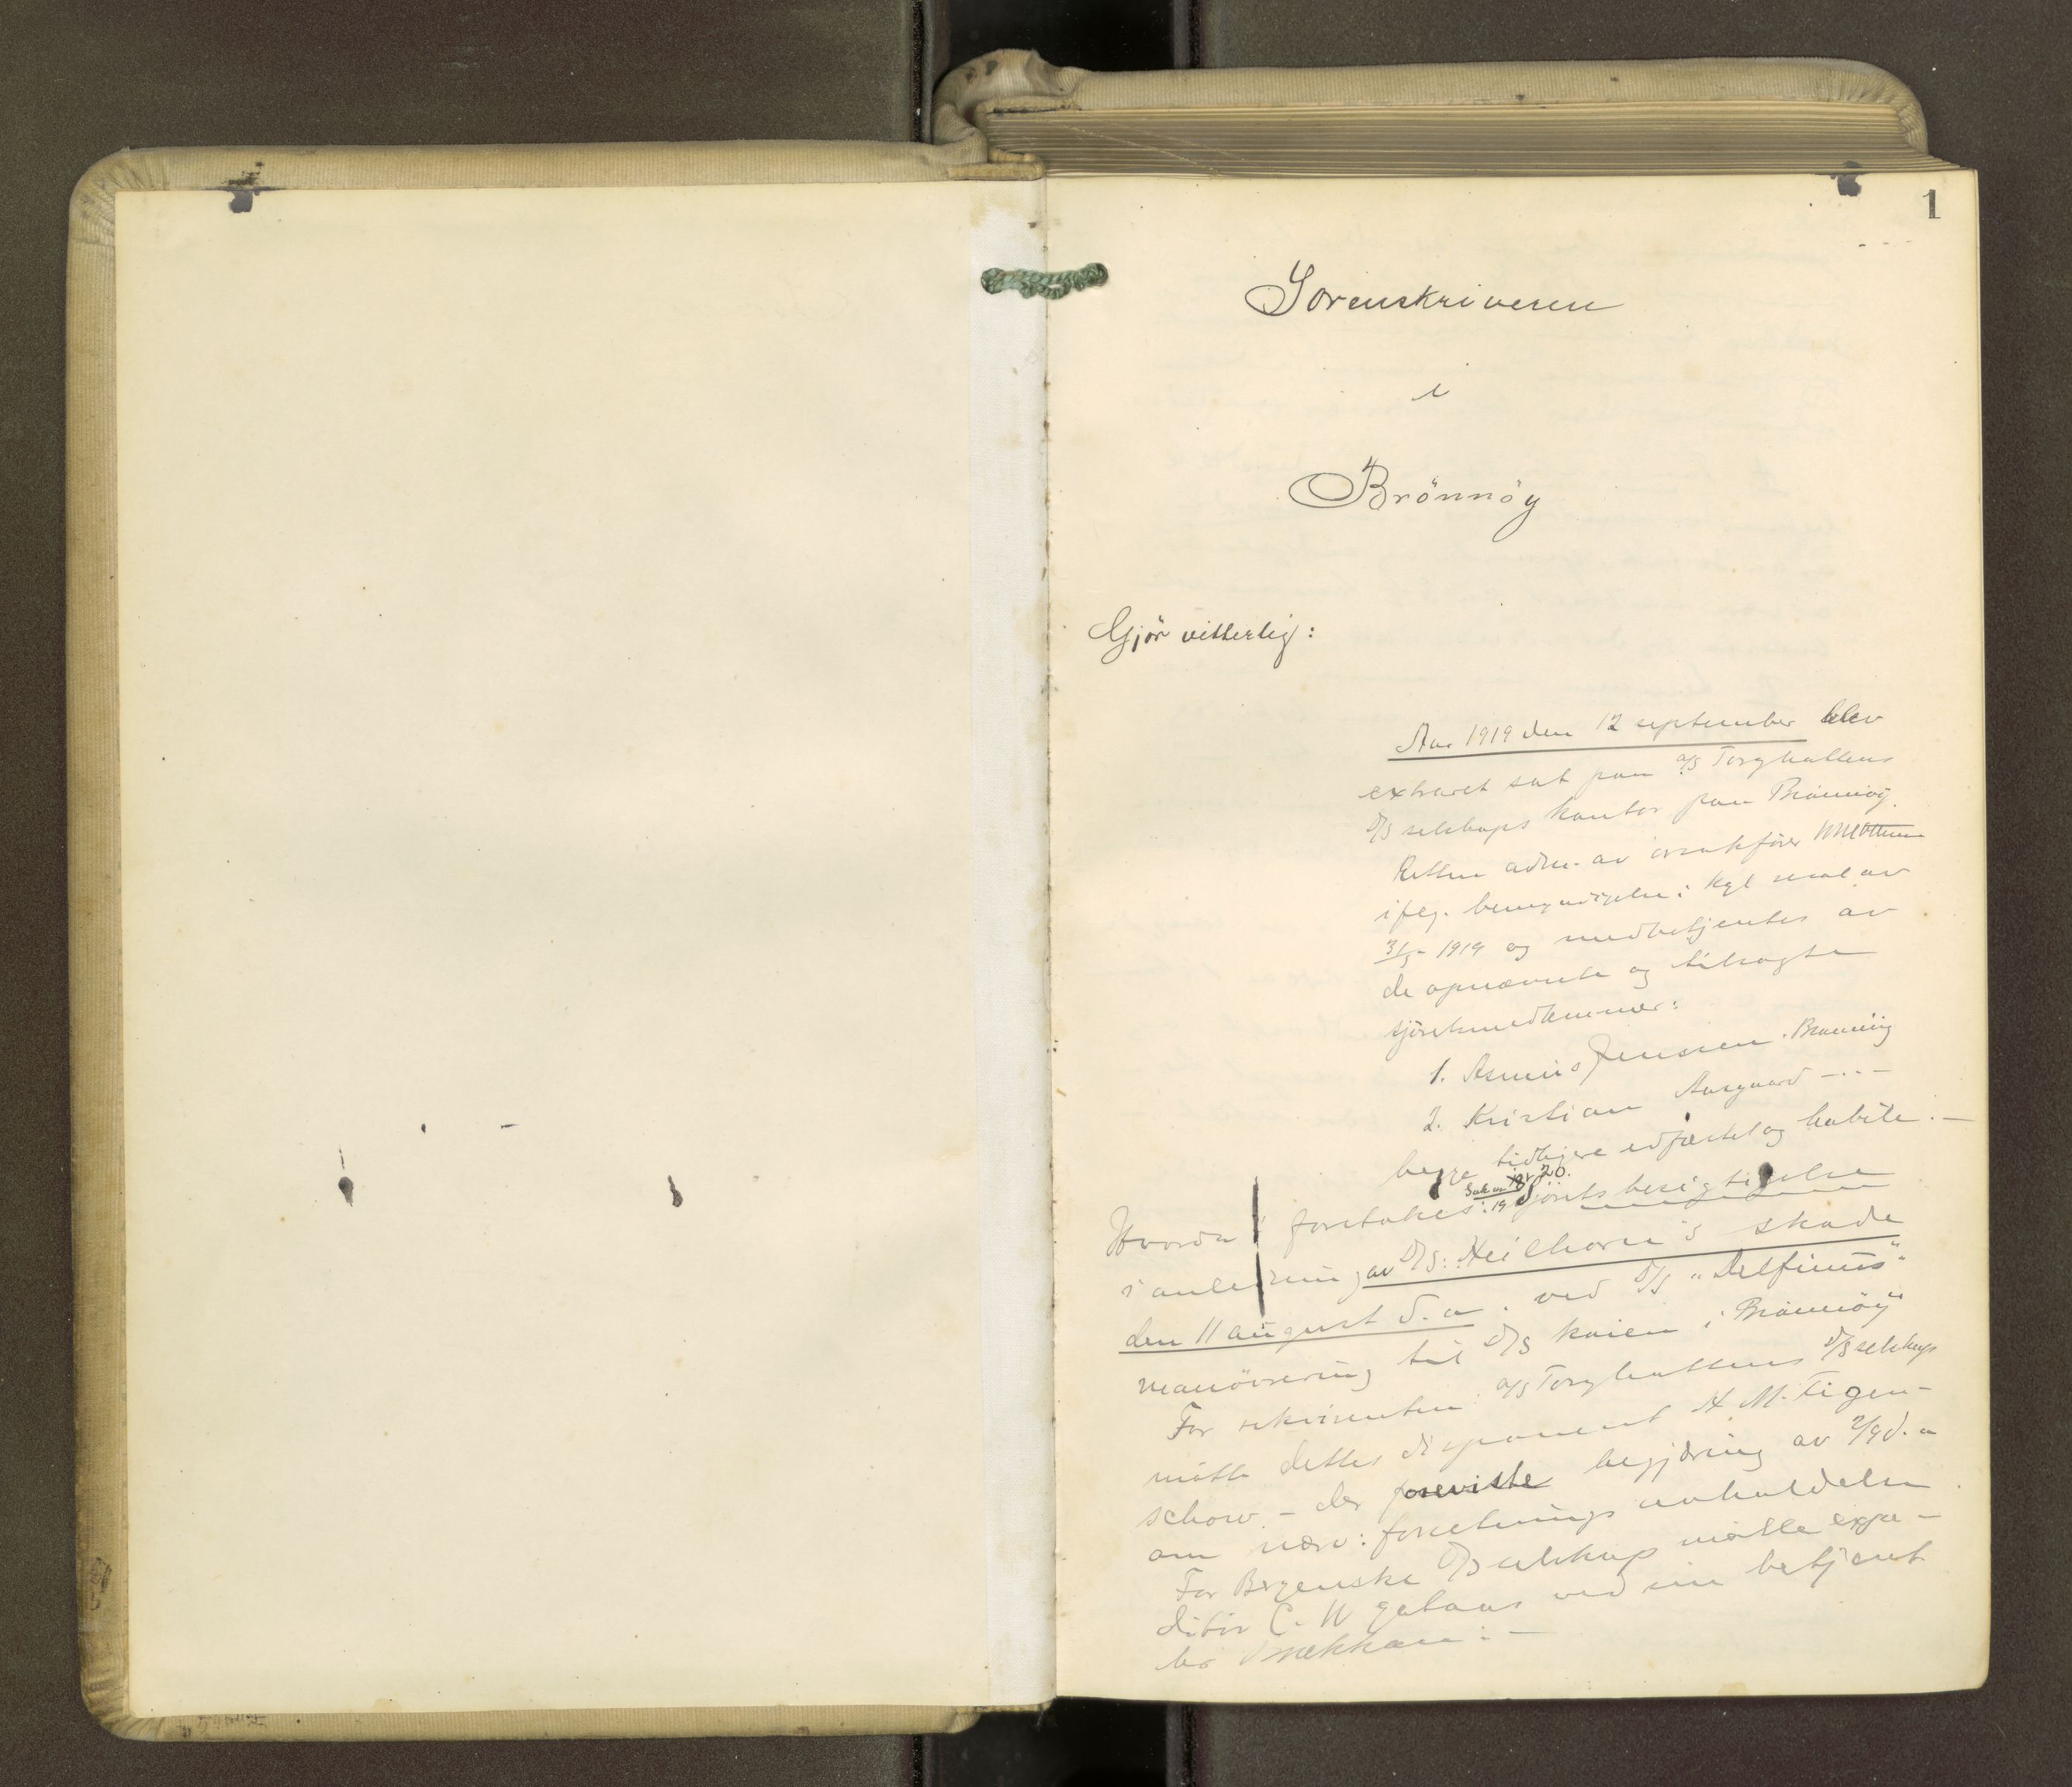 1
Sorenskriveren
i
Brönnöy
Gjör vitterlig:
Aar 1919 den 12 september blev
extraret sat paa a/s Torghattens
D/S selskaps kontor paa Brönnöy.
Retten adm. av overretssakförer
ifølg. bemyndigelse i kgl resol. av
31/5 - 1919 og medbetjentes av
de opnævnte og tilsagte
sjöretsmedlemmer:
1. Asmus Jenssen. Brönnöy
2. Kristian Aasgaard - " -
begge tidligere edfæstet og habile. -
Sak nr 20.
19
Hvorda foretokes: Sjörets besigtigelse
i anledning av D/S: Heilhorn's skade
den 11 august d. a. ved D/S "Delfinus"
manövrering til D/S kaien i Brönnöy
For rekvirenten a/s Torghattens D/S selskap
mötte dettes disponent H M. Tigen-
schow - der foreviste begjæring av 2/9 d. a
om nærv: forretnings avholdelse
For Bergenske D/S selskap mötte expe-
ditör C. W ved sin betjent
hr Brækkan: -